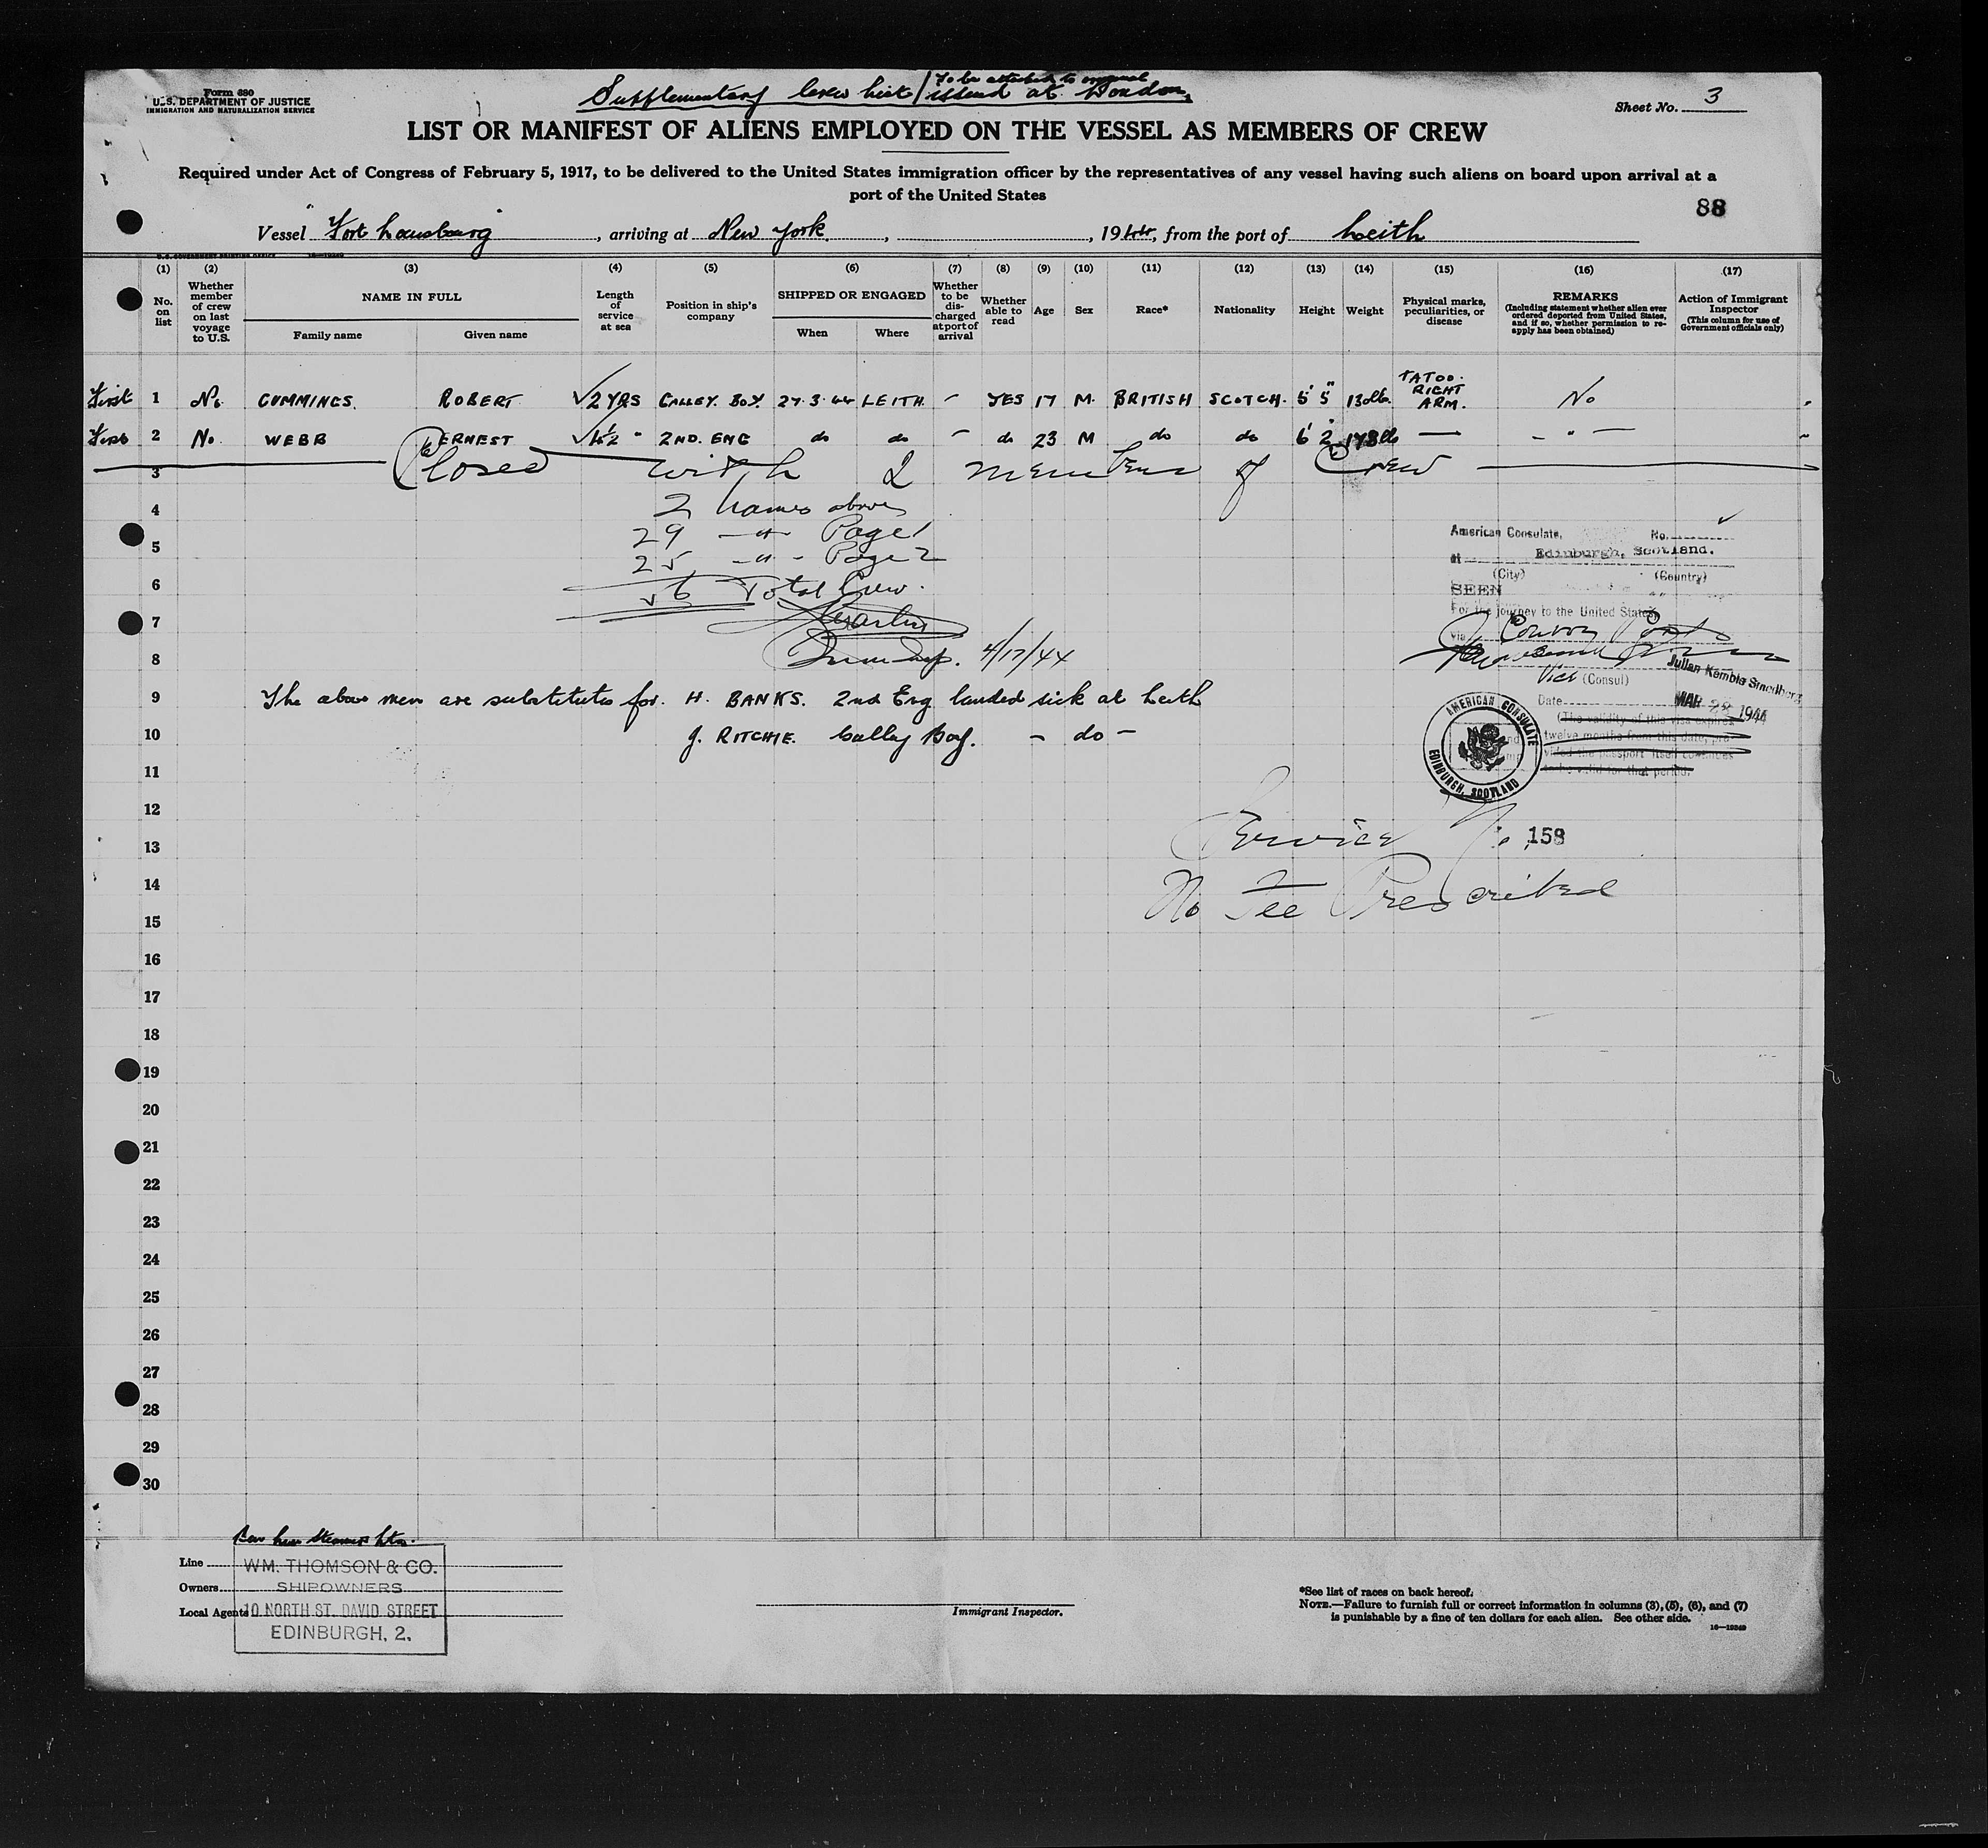 Form 680
U.S. DEPARTMENT OF JUSTICE
IMMIGRATION AND NATURALIZATION SERVICE
Supplementary Crew List / To be attached to original
issued at London.
Sheet No. 3
LIST OR MANIFEST OF ALIENS EMPLOYED ON THE VESSEL AS MEMBERS OF CREW
Required under Act of Congress of February 5, 1917, to be delivered to the United States immigration officer by the representatives of any vessel having such aliens on board upon arrival at a
port of the United States
88
Vessel "Fort Louisbourg", arriving at New York, 1944, from the port of Leith
(1) (2) (3) (4) (5) (6) (7) (8) (9) (10) (11) (12) (13) (14) (15) (16) (17)
No. on list
Whether member of crew on last voyage to U.S.
NAME IN FULL
Family name
Given name
Length of service at sea
Position in ship's company
SHIPPED OR ENGAGED
When
Where
Whether to be discharged at port of arrival
Whether able to read
Age
Sex
Race*
Nationality
Height
Weight
Physical marks, peculiarities, or disease
REMARKS
(Including statement whether alien ever ordered deported from United States, and if so, whether permission to re-apply has been obtained)
Action of Immigrant Inspector
(This column for use of Government officials only)
First 1 No. CUMMINGS. ROBERT ✓ 2 YRS GALLEY. BOY. 27.3.44 LEITH. - YES 17 M. BRITISH SCOTCH. 5' 5" 130lb. TATOO. RIGHT ARM. No
First 2 No. WEBB ERNEST ✓ 1½ " 2ND. ENG do do - do 23 M do do 6' 2" 178lb — - " —
3 Closed with 2 members of Crew
4 2 Names above
5 29 -"- Page 1
25 -"- Page 2
6 56 Total Crew.
7
8 4/17/44
9 The above men are substitutes for. H. BANKS. 2nd Eng landed sick at Leith
10 J. RITCHIE. Galley Boy. - do -
11
12
13
14
15
16
17
18
19
20
21
22
23
24
25
26
27
28
29
30
American Consulate, No.
at Edinburgh, Scotland.
(City) (Country)
SEEN
For the journey to the United States
via Convoy Ports
Vice (Consul)
Date MAR 28 1944
(The validity of this visa expires
twelve months from this date, pro-
vided the passport itself continues
to be valid for that period.
AMERICAN CONSULATE
EDINBURGH, SCOTLAND
Service No. 158
No Fee Prescribed
Ben Line Steamers Ltd.
Line
Owners
Local Agents
WM. THOMSON & CO.
SHIPOWNERS
10 NORTH ST. DAVID STREET
EDINBURGH, 2.
Immigrant Inspector.
*See list of races on back hereof.
NOTE.—Failure to furnish full or correct information in columns (3), (5), (6), and (7)
is punishable by a fine of ten dollars for each alien. See other side.